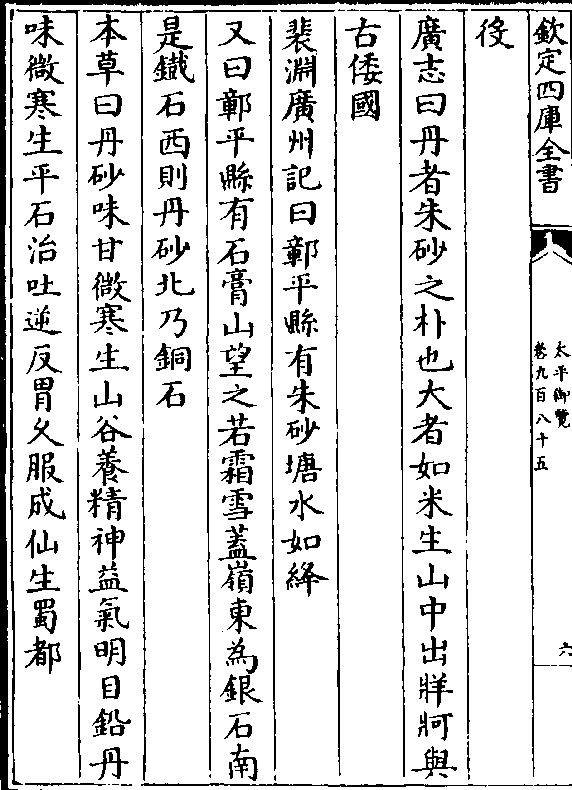 欽定四庫全書
太平御覽
卷九百八十五
六
後
廣志曰丹者朱砂之朴也大者如米生山中出牂牁與
古倭國
裴淵廣州記曰鄣平縣有朱砂塘水如絳
又曰鄣平縣有石膏山望之若霜雪葢嶺東為銀石南
是鐵石西則丹砂北乃銅石
本草曰丹砂味甘微寒生山谷養精神益氣明目鉛丹
味微寒生平石治吐逆反胃乆服成仙生蜀都